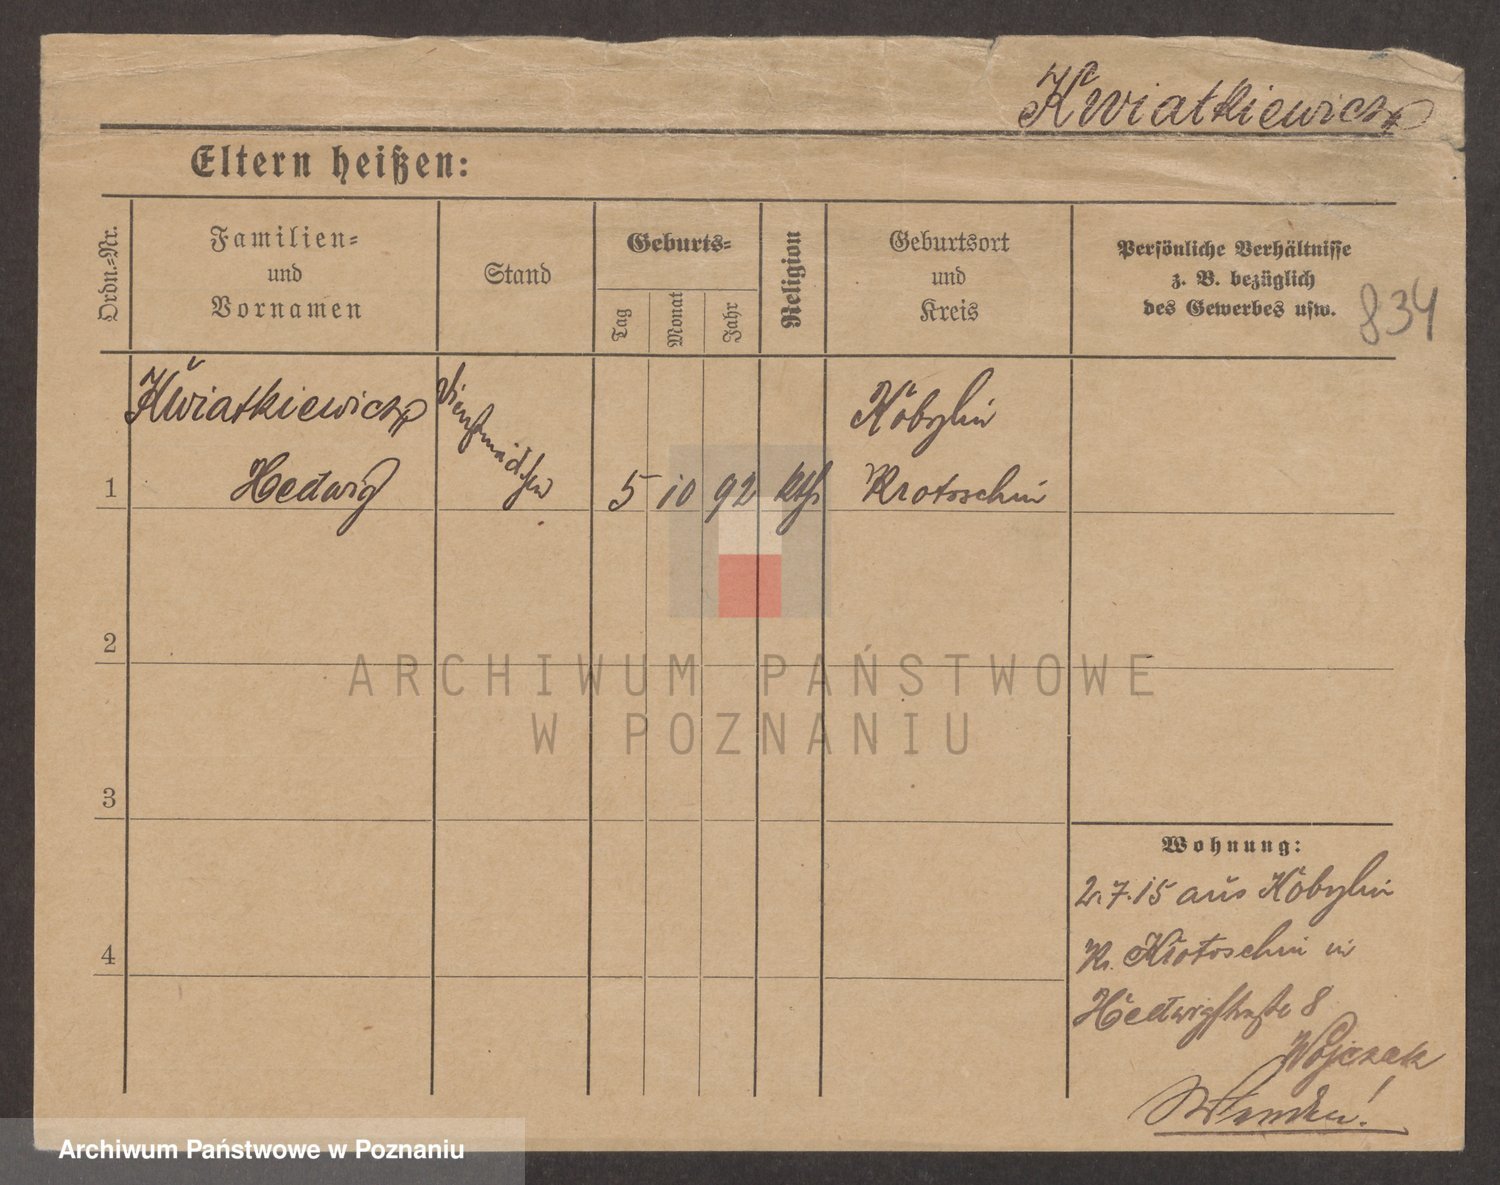 Kwiatkiewicz
Eltern heißen:
Ordn.-Nr.
Familien-
und
Vornamen
Stand
Geburts-
Tag
Monat
Jahr
Religion
Geburtsort
und
Kreis
Persönliche Verhältnisse
z. B. bezüglich
des Gewerbes usw.
834
Kwiatkiewicz
Hedwig
Dienstmädchen
1
5 10 92 kth
Kobylin
Krotoschin
2
3
4
Wohnung:
2.7.15 aus Kobylin
Kr. Krotoschin in
Hedwigstraße 8
Wojczak
ARCHIWUM PAŃSTWOWE
W POZNANIU
Archiwum Państwowe w Poznaniu